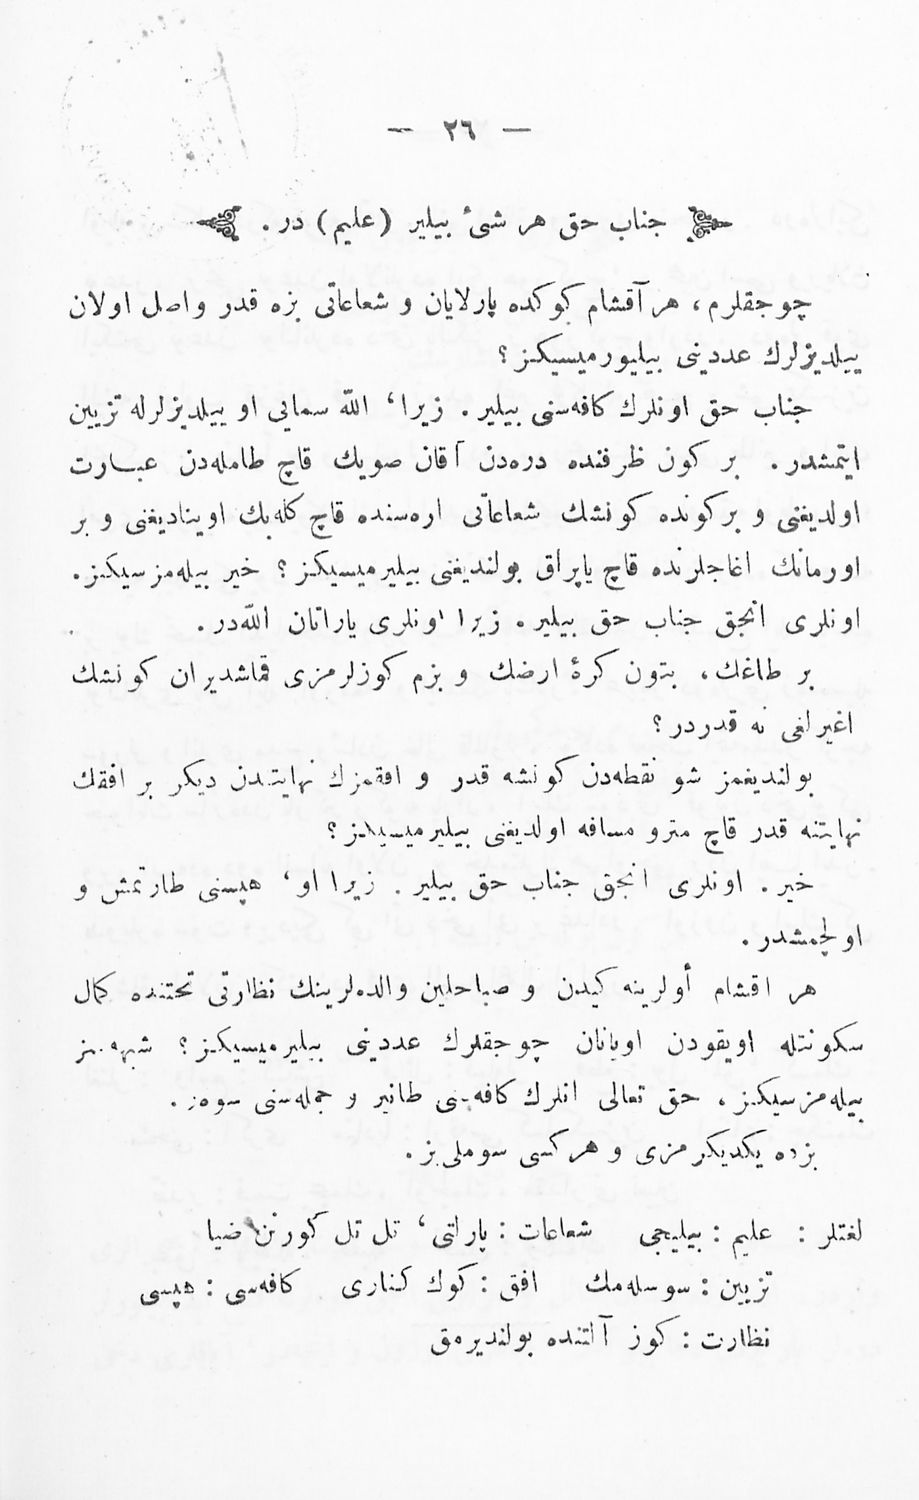 — ٢٦ —
جناب حق هر شیٔ بیلیر (علیم) در.
چوجقلرم، هر آقشام کوکده پارلایان و شعاعاتی بزه قدر واصل اولان
ییلدیزلرك عددینی بیلیورمیسیکز؟
جناب حق اونلرك کافه‌سنی بیلیر. زیرا، اللّه سمایی او ییلدیزلرله تزیین
ایتمشدر. بر کون ظرفنده دره‌دن آقان صویك قاچ طامله‌دن عبارت
اولدیغنی و بر کونده کونشك شعاعاتی اره‌سنده قاچ کله‌بك اوینادیغنی و بر
اورمانك اغاجلرنده قاچ یاپراق بولندیغنی بیلیرمیسیکز؟ خیر بیله‌مزسیکز.
اونلری انجق جناب حق بیلیر. زیرا اونلری یاراتان اللّه‌در.
بر طاغك، بتون کرهٔ ارضك و بزم کوزلرمزی قماشدیران کونشك
اغیرلغی نه قدردر؟
بولندیغمز شو نقطه‌دن کونشه قدر و افقمزك نهایتندن دیکر بر افقك
نهایتنه قدر قاچ مترو مسافه اولدیغنی بیلیرمیسیکز؟
خیر. اونلری انجق جناب حق بیلیر. زیرا او، هپسنی طارتمش و
اولچمشدر.
هر اقشام أولرینه کیدن و صباحلین والده‌لرینك نظارتی تحتنده کمال
سکونتله اویقودن اویانان چوجقلرك عددینی بیلیرمیسیکز؟ شبهه‌سز
بیله‌مزسیکز، حق تعالی انلرك کافه‌سنی طانیر و جمله‌سنی سوه‌ر.
بزده یکدیکرمزی و هرکسی سوملی‌یز.
لغتلر: علیم: بیلیجی شعاعات: پارلتی، تل تل کورنن ضیا
تزیین: سوسله‌مك افق: کوك کناری کافه‌سی: هپسی
نظارت: کوز آلتنده بولندیرمق